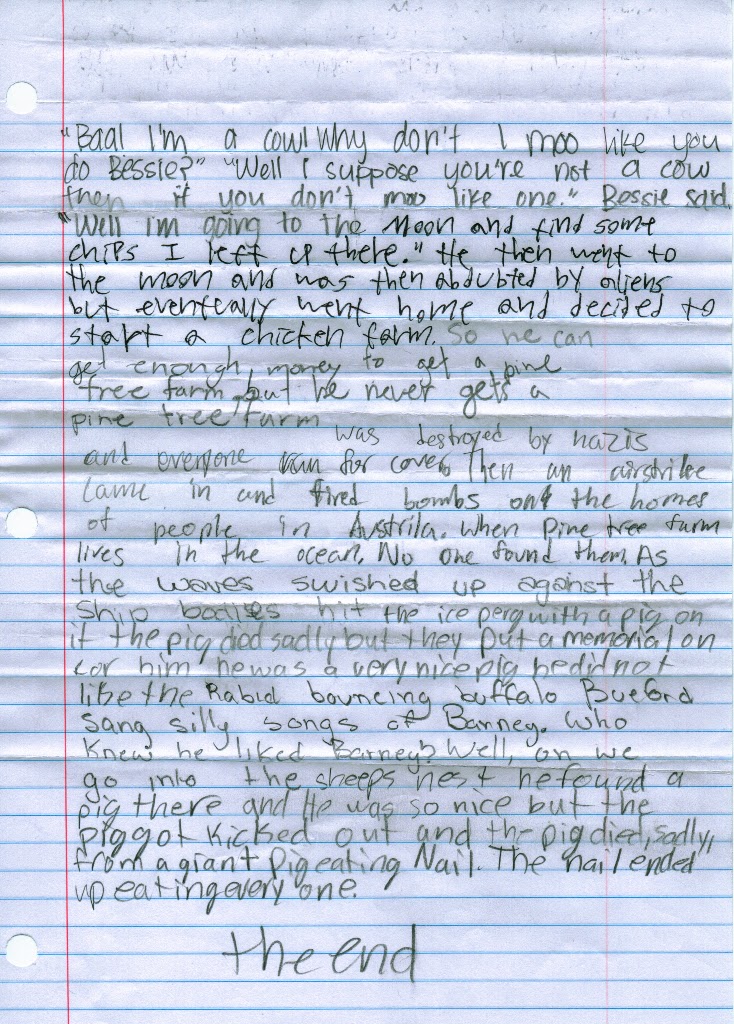 "Baa! I'm a cow! Why don't I moo like you
do Bessie?" "Well I suppose you're not a cow
then if you don't moo like one." Bessie said.
"Well im going to the Moon and find some
chips I left up there." He then went to
the moon and was then abdubted by aliens
but eventually went home and decided to
start a chicken farm. So he can
get enough money to get a pine
tree farm but he never gets a
pine tree farm
was destroyed by nazis
and everyone run for cover. Then an airstrike
came in and fired bombs on the homes
of people in Austrila. When Pine tree farm
lives in the ocean. No one found them. As
the waves swished up against the
ship bodies hit the ice perg with a pig on
it the pig died sadly but they put a memorial on
for him he was a very nice pig he did not
like the Rabid bouncing buffalo Bueford
Sang silly songs of Barney. Who
Knew he liked Barney? Well, on we
go into the sheeps nest he found a
pig there and He was so nice but the
pig got kicked out and the pig died, sadly,
from a giant Pig eating Nail. The nail ended
up eating every one.
the end